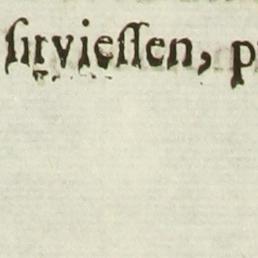 ſirvieſſen, p